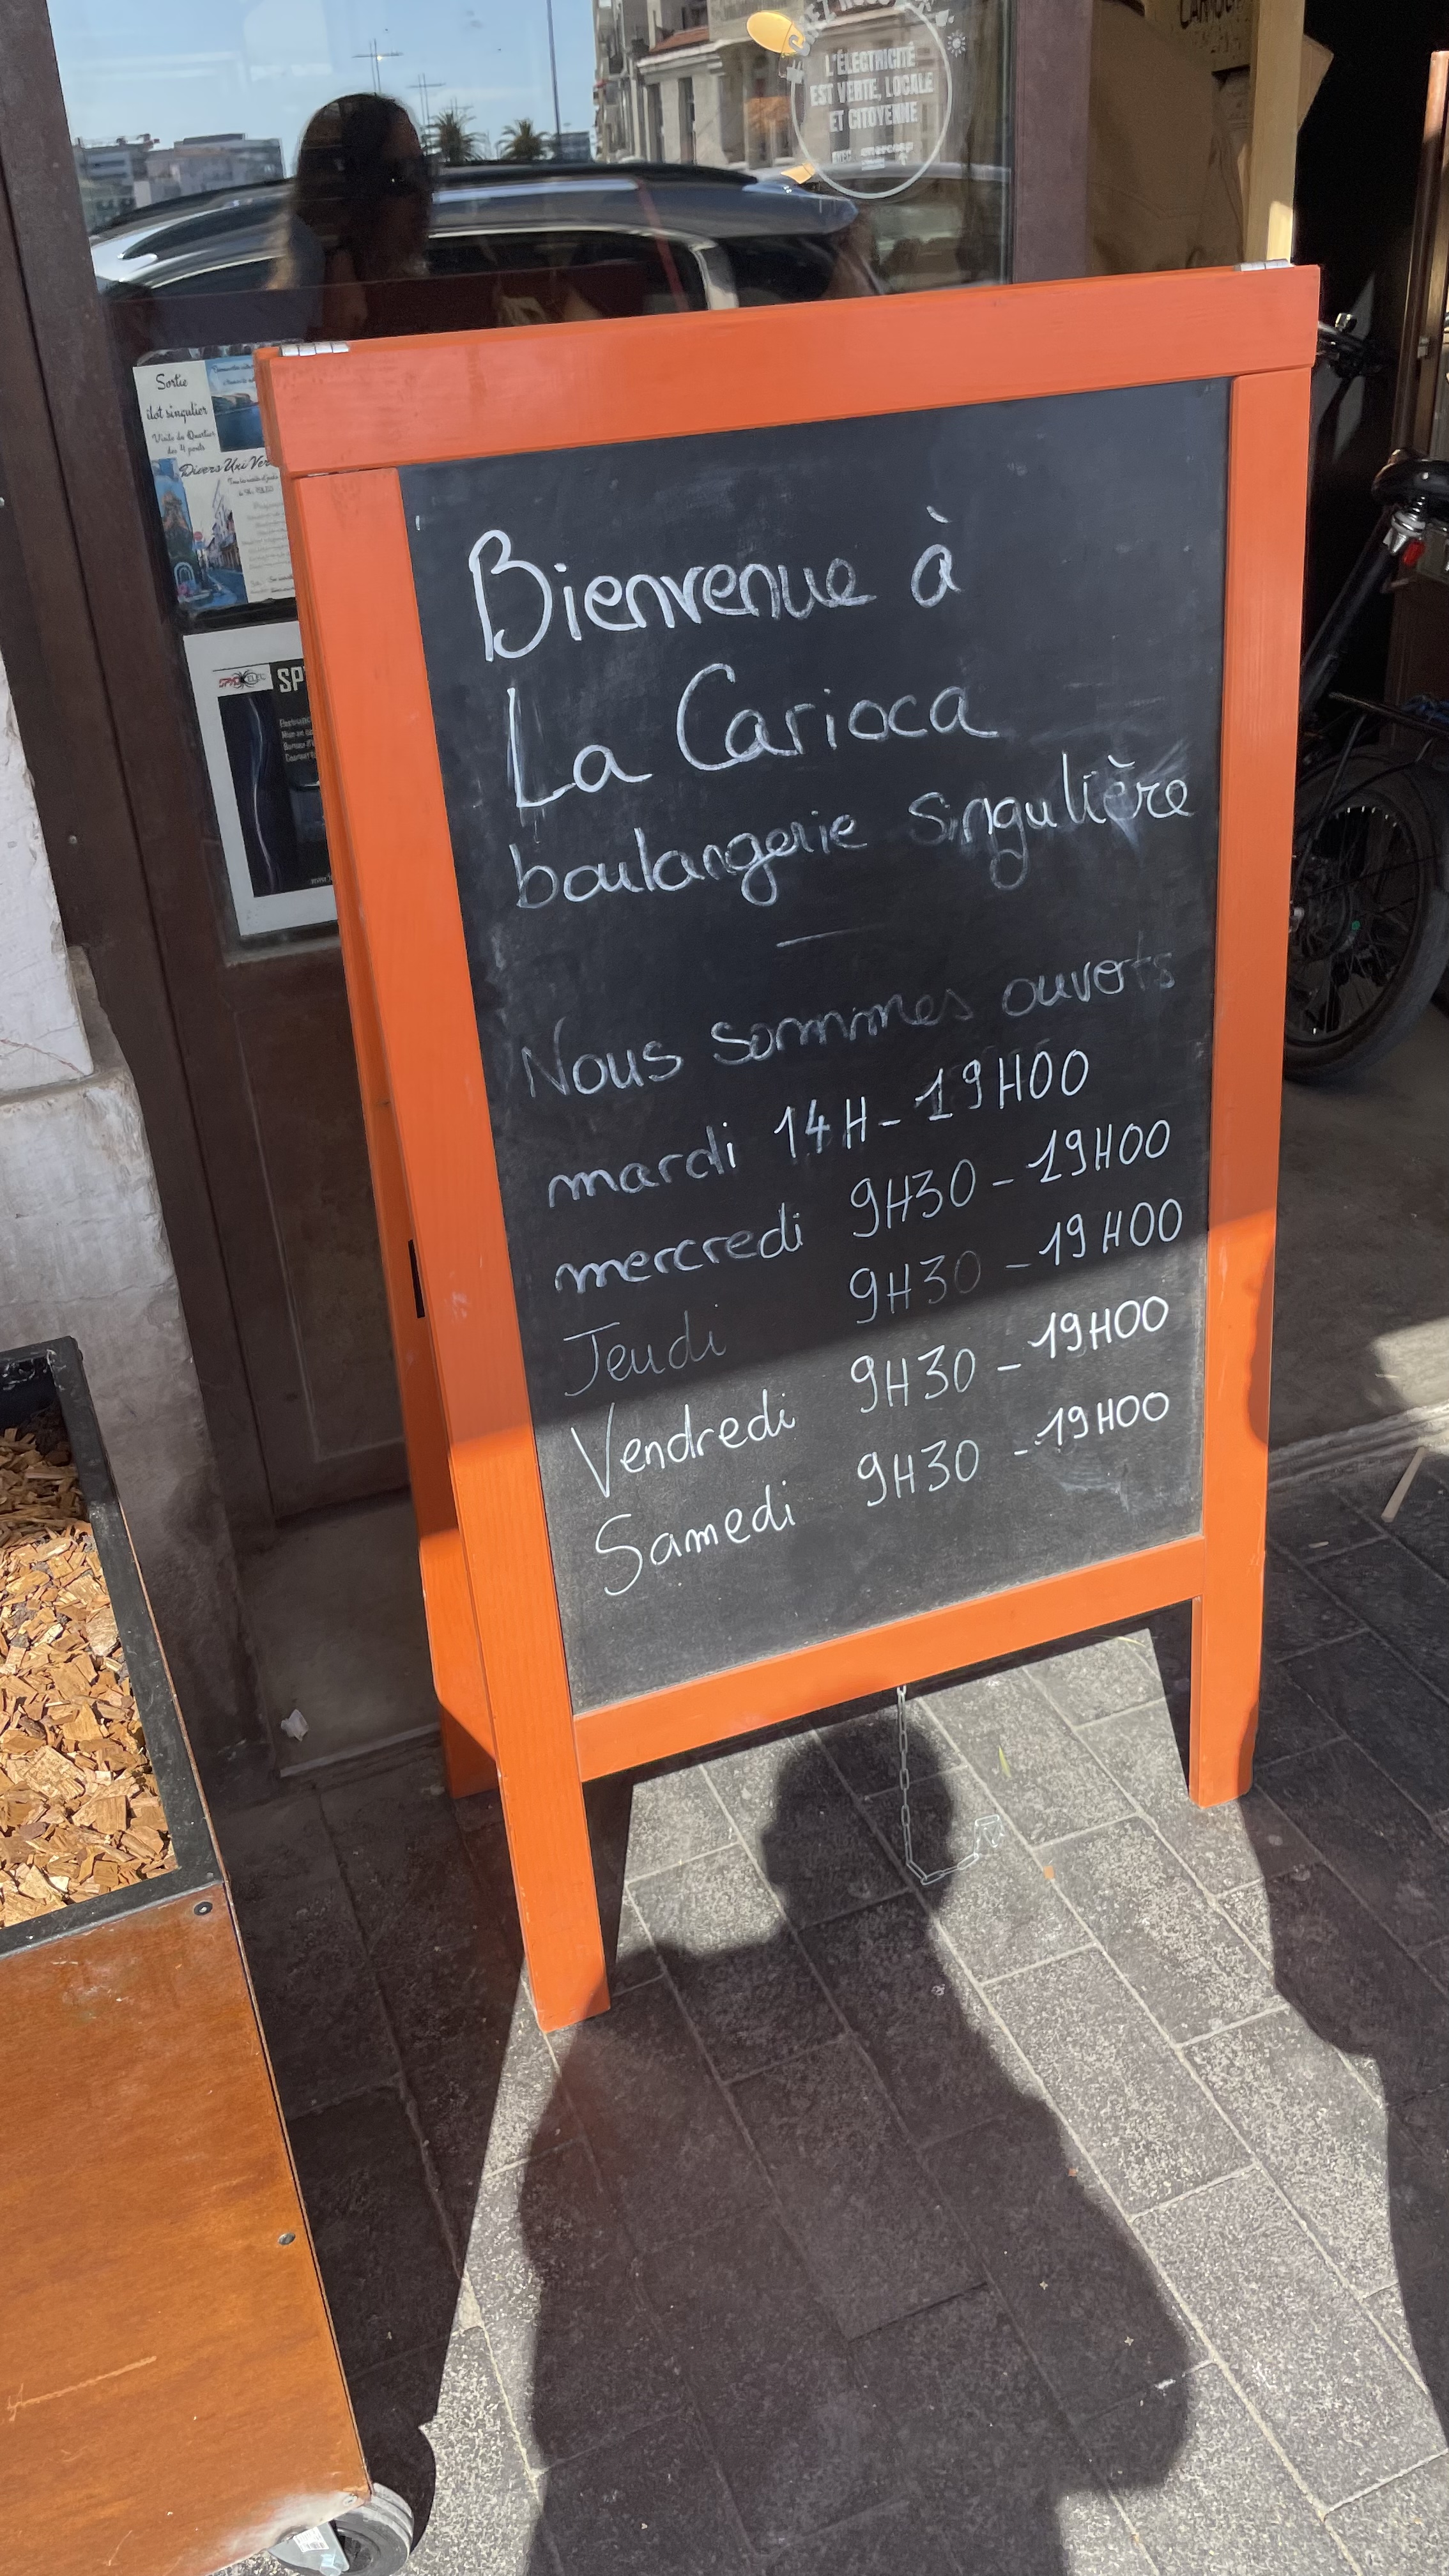 CHEZ NOUS
L'ÉLECTRICITÉ
EST VERTE, LOCALE
ET CITOYENNE
AVEC enercoop
Sortie
ilot singulier
Visite du Quartier
des 4 ponts
Divers Uni Ver
SPYD ELEC
SP
Bienvenue à
La Carioca
boulangerie singulière
Nous sommes ouverts
mardi 14H - 19H00
mercredi 9H30 - 19H00
Jeudi 9H30 - 19H00
Vendredi 9H30 - 19H00
Samedi 9H30 - 19H00